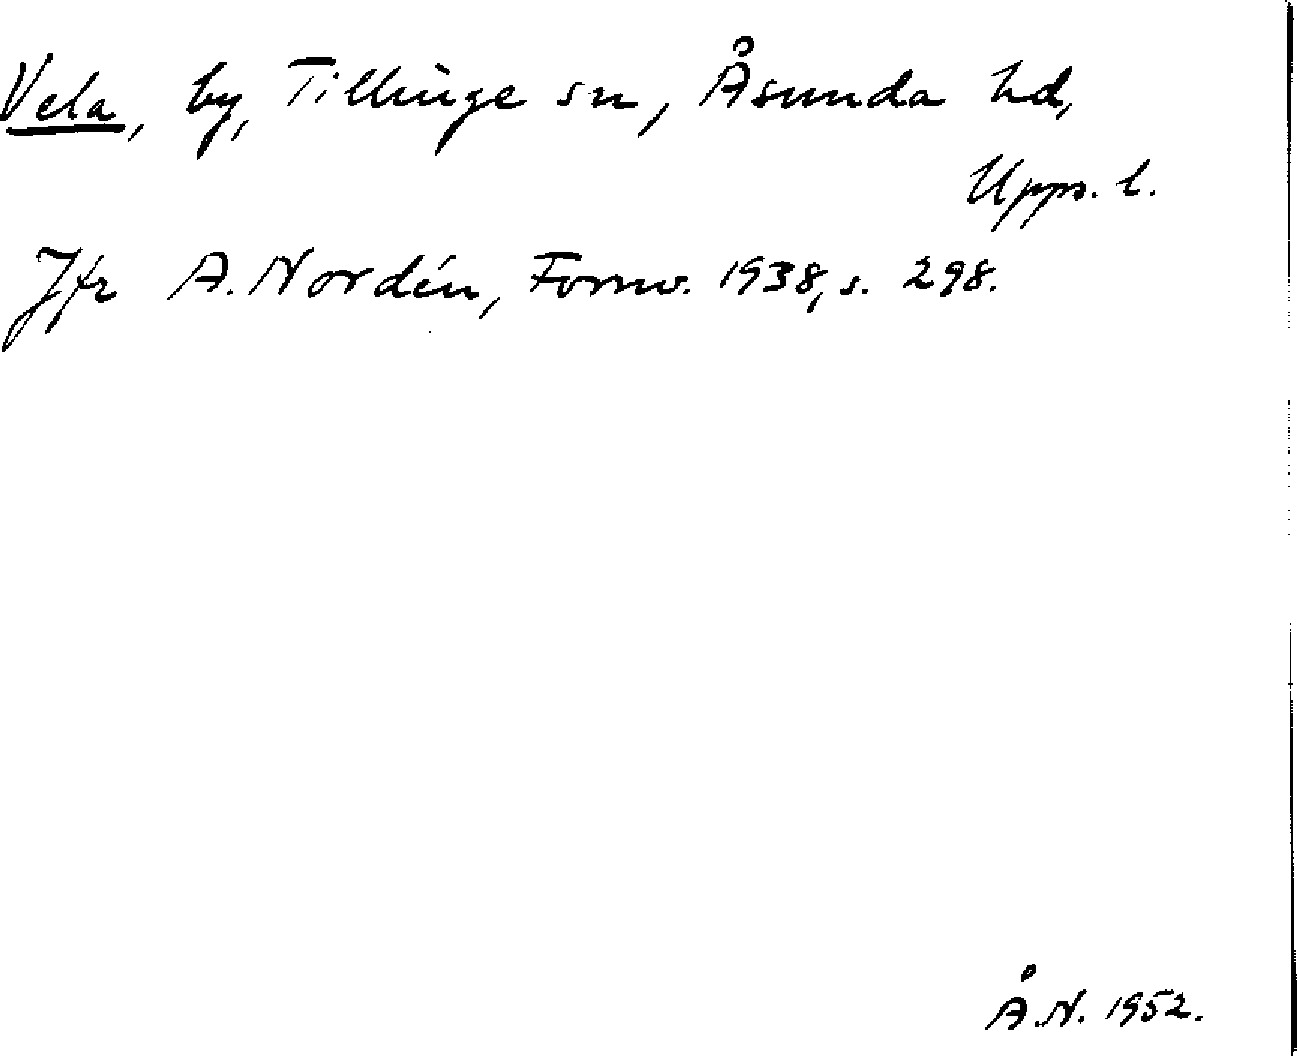 Vela, by, Tillinge sn, Åsunda hd,
Upps. l.
Jfr A. Nordén, Fornv. 1938, s. 298.
Å.N. 1952.